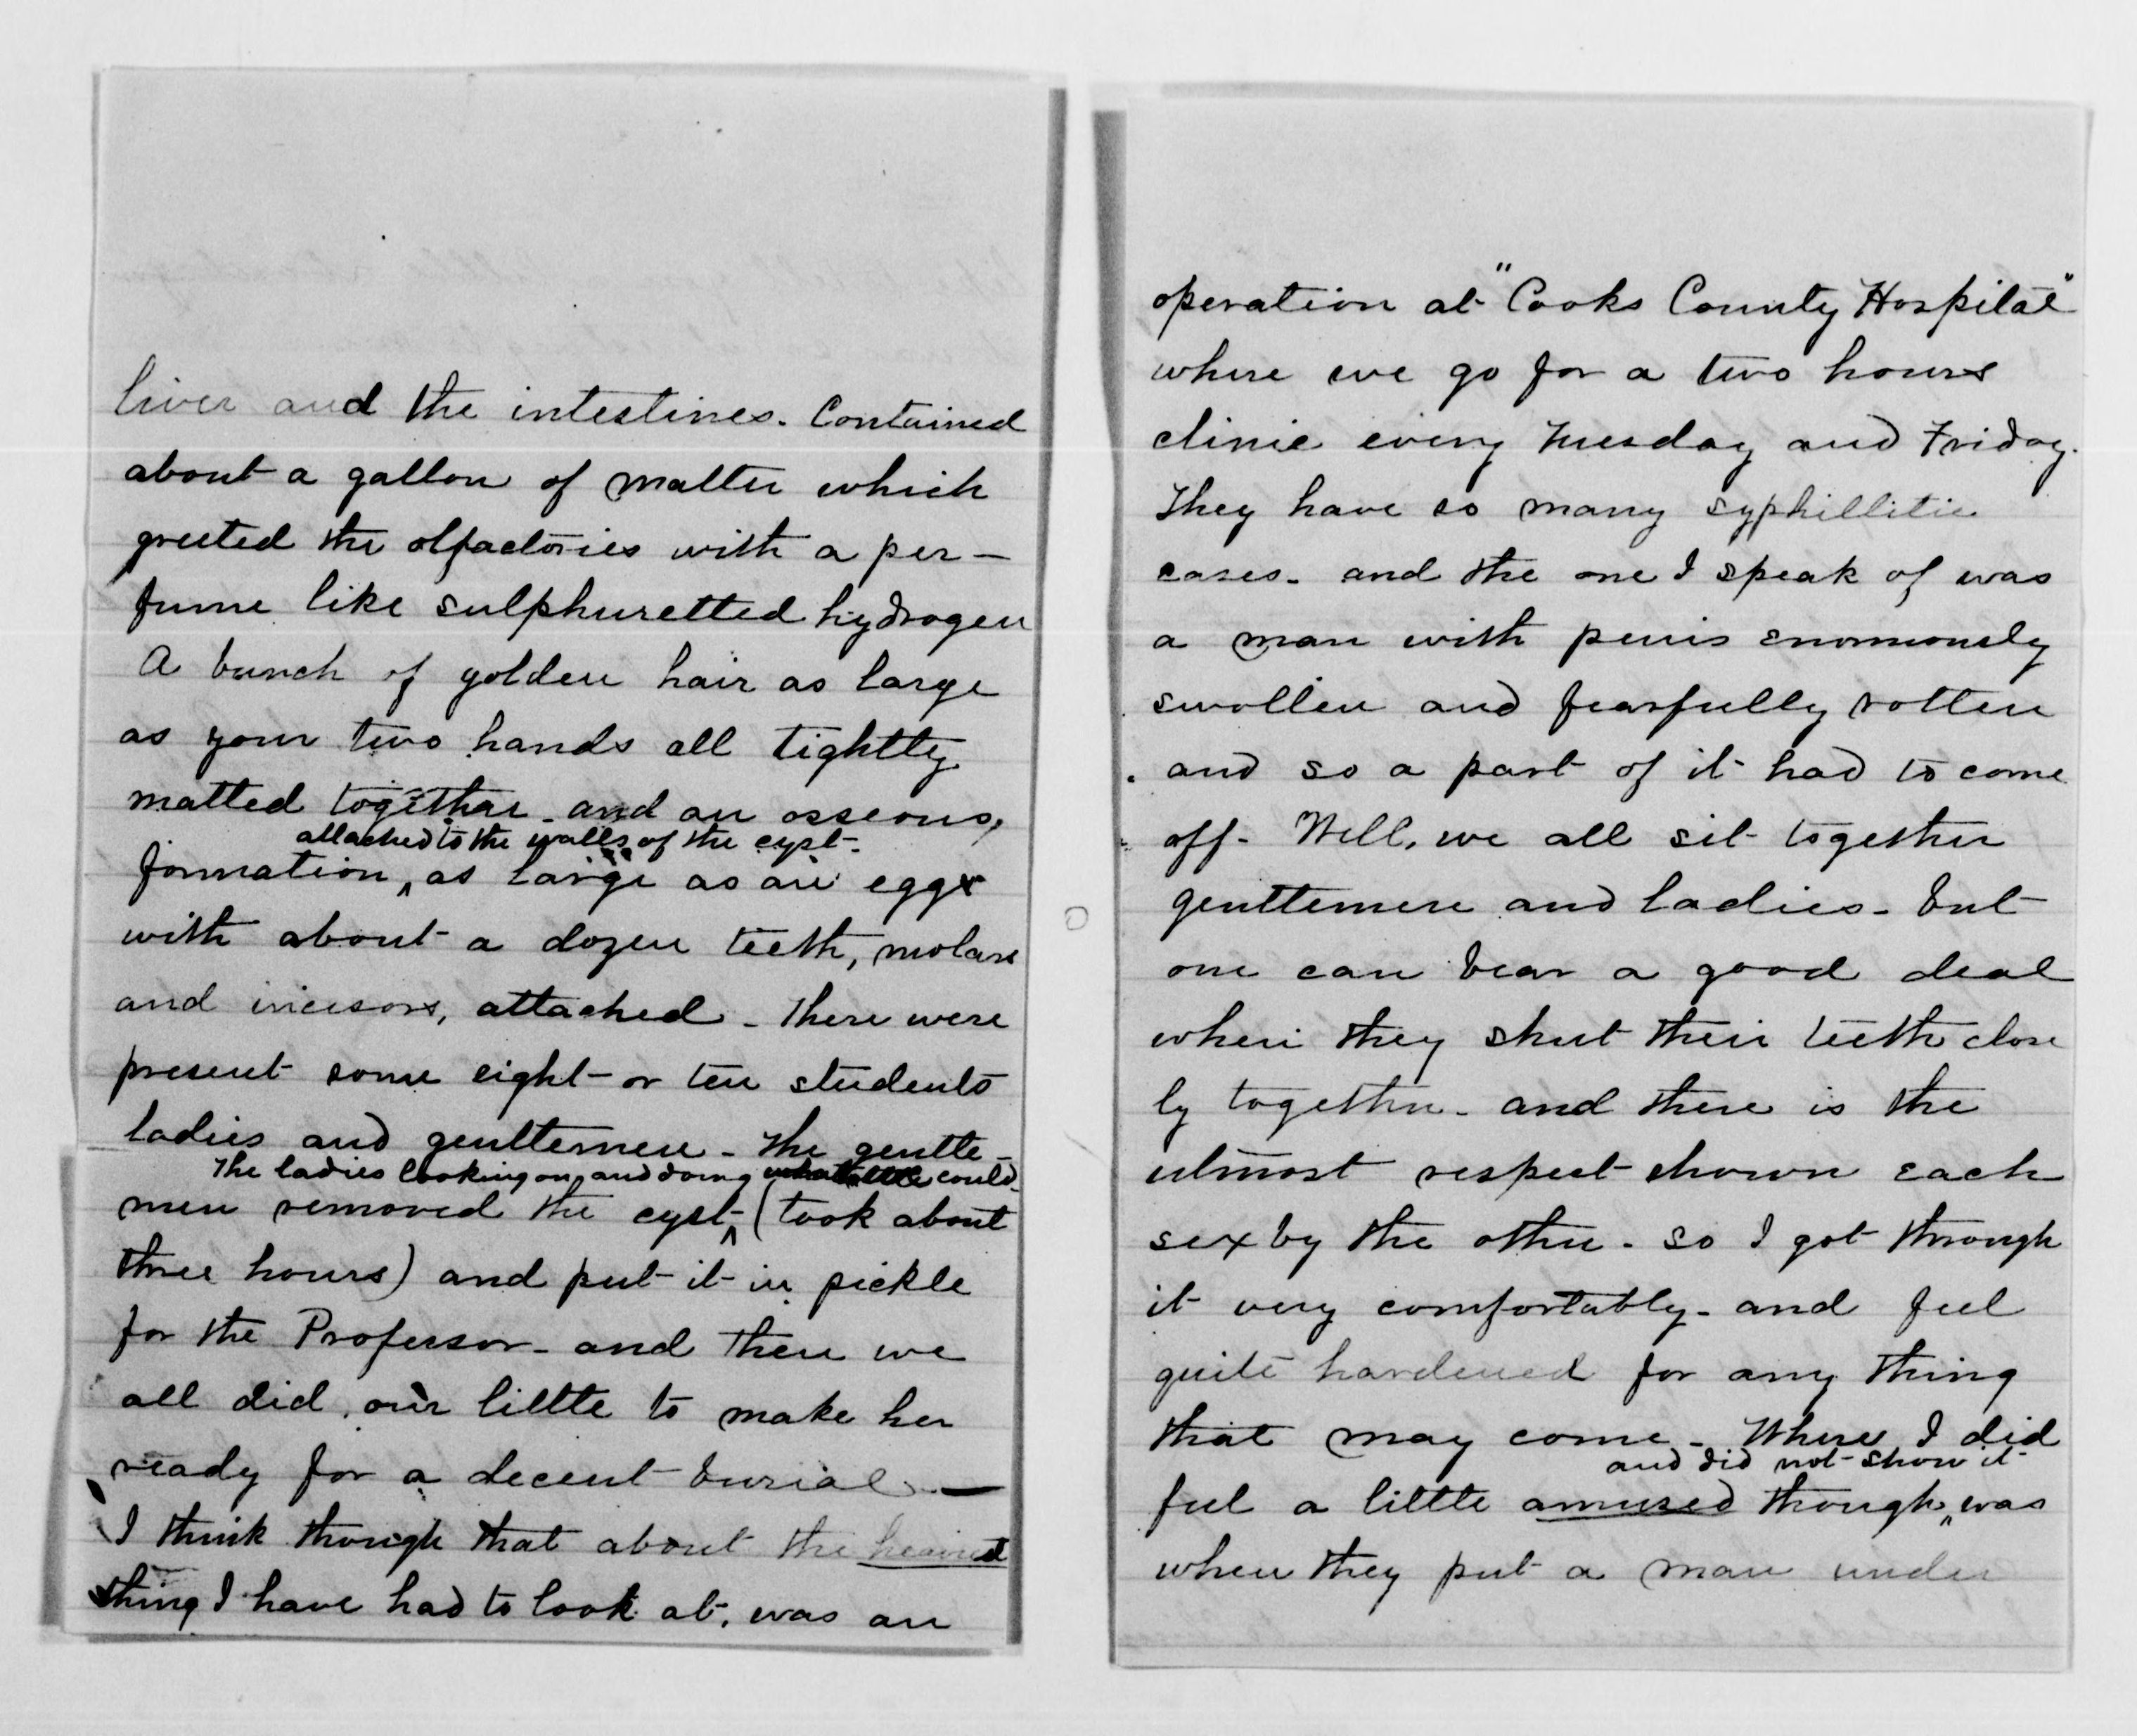 liver and the intestines. Contained
about a gallon of matter which
greeted the olfactories with a per-
fume like sulphuretted hydrogen
A bunch of golden hair as large
as your two hands all tightly
matted together - and an osseous,
attached to the walls of the cyst -
formation, ^ as large as an egg
with about a dozen teeth, molars
and incisors, attached - There were
present some eight or ten students
ladies and gentlemen - The gentle-
The ladies looking on, and doing could -
men removed the cyst ^ (took about
three hours) and put it in pickle
for the Professor - and then we
all did our little to make her
ready for a decent burial. —
I think though that about the heaviest
thing I have had to look at, was an
operation at "Cooks County Hospital"
where we go for a two hours
clinic every Tuesday and Friday.
They have so many syphillitic
cases - and the one I speak of was
a man with penis enormously
swollen and fearfully rotten
and so a part of it had to come
off - Well, we all sit together
gentlemen and ladies - but
one can bear a good deal
when they shut their teeth close
ly together - and there is the
utmost respect shown each
sex by the other - so I got through
it very comfortably - and feel
quite hardened for any thing
that may come - Where I did
and did not show it
feel a little amused though ^ was
when they put a man under